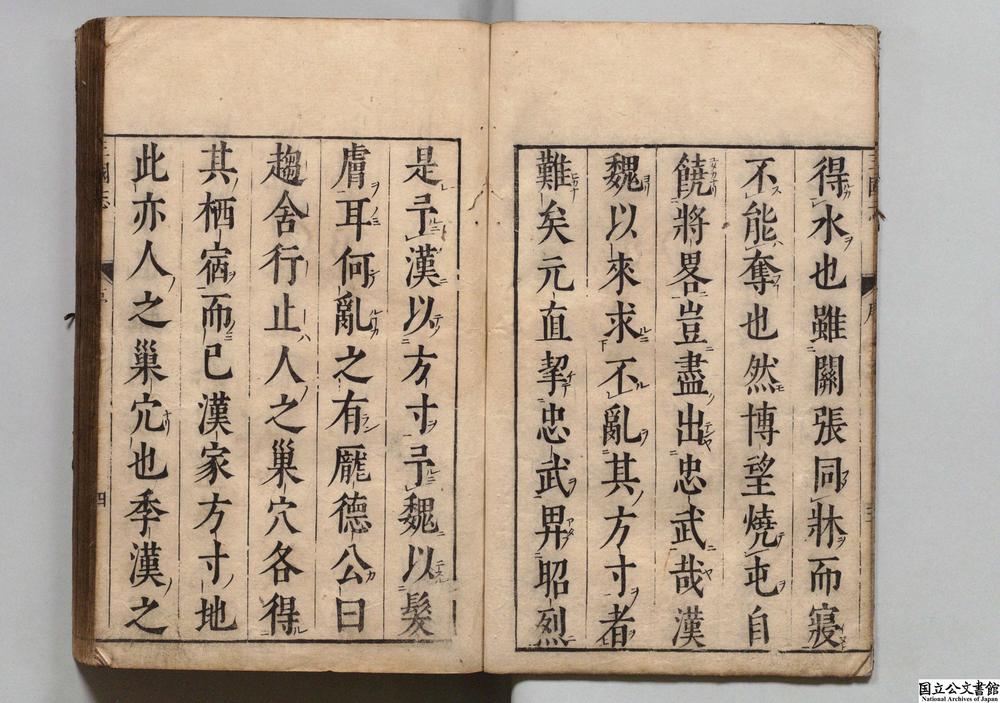 得水也雖關張同牀而寢
不能奪也然博望燒屯自
饒將畧豈盡出忠武哉漢
魏以來求不亂其方寸者
難矣元直挈忠武畀昭烈
是予漢以方寸予魏以髮
膚耳何亂之有龐德公曰
趨舍行止人之巢穴各得
其栖宿而已漢家方寸地
此亦人之巢穴也季漢之
三國志
四
国立公文書館
National Archives of Japan